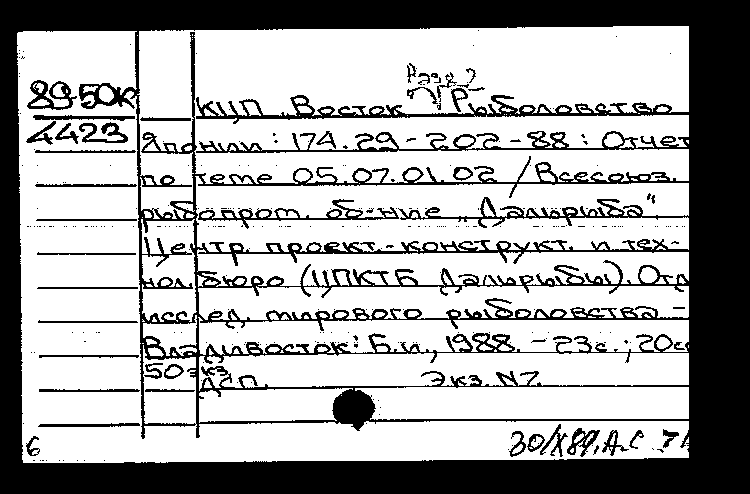 Разд. 2
89-50к КЦП „Восток" Рыболовство
4423 Японии: 174.29-202-88: Отчет
по теме 05.07.01.02 / Всесоюз.
рыбопром. об-ние „Дальрыба",
Центр. проект.-конструкт. и тех-
нол. бюро (ЦПКТБ Дальрыбы). Отд
исслед. мирового рыболовства -
Владивосток: Б.и., 1988. - 23с.; 20см
50 экз.
ДСП. Экз. N7.
6 30/X89. А.С